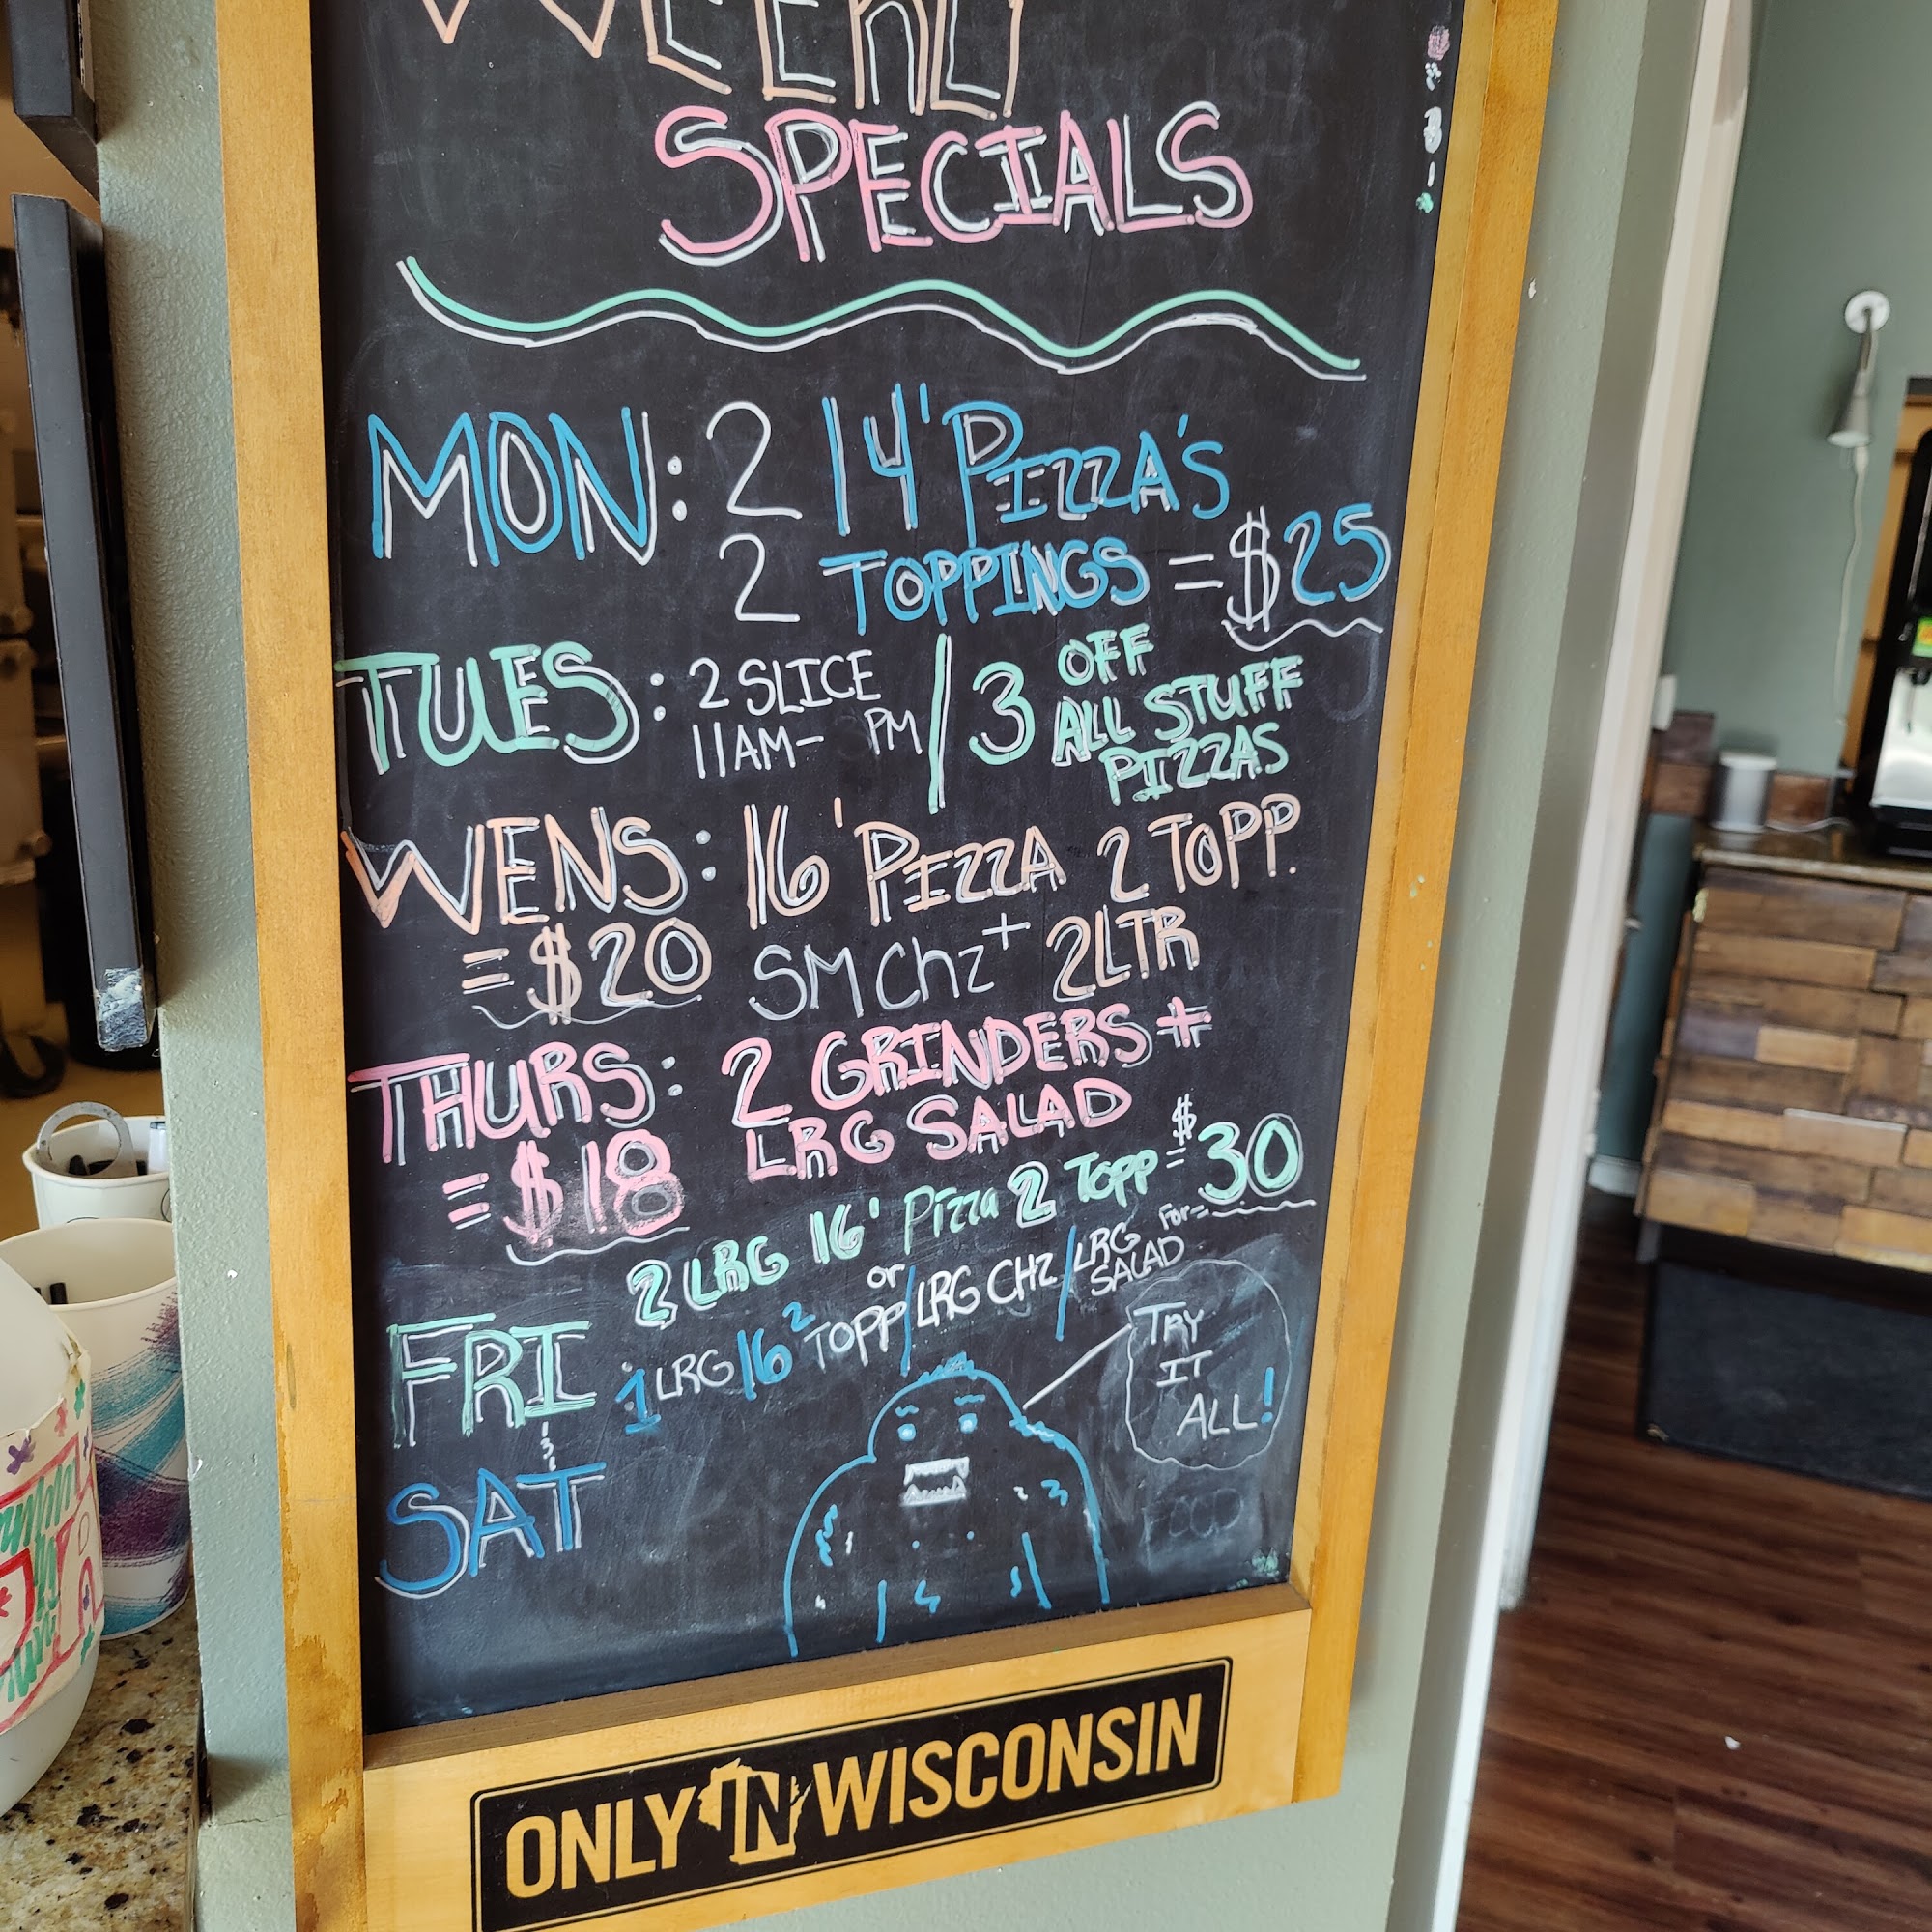 WEEKLY
SPECIALS
MON: 2 14' PIZZA'S
2 TOPPINGS = $25
TUES: 2 SLICE
11AM- PM / 3 OFF
ALL STUFF
PIZZAS
WENS: 16' PIZZA 2 TOPP.
= $20 SM Chz + 2LTR
THURS: 2 GRINDERS +
LRG SALAD
= $18
2 LRG 16' Pizza 2 TOPP = $30
or
For=
FRI : 1 LRG/16 2 TOPP/LRG CHZ/LRG SALAD
SAT
TRY
IT
ALL!
FOOD
ONLY IN WISCONSIN